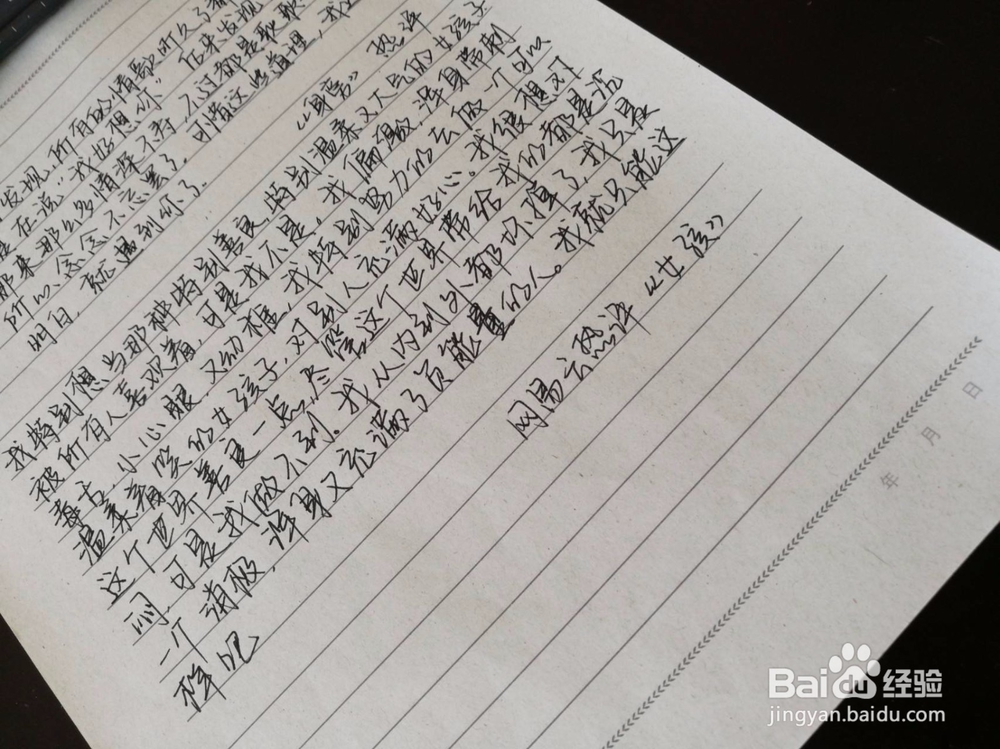 发现,所有的情歌听久了都
是在说:“我好想你”后来发现
那来那么多情深不寿,不过都是耿耿
所以念念不忘罢了.可惜这些道理,我
明白,就遇到你了.
《身骑》 热评
我特别想当那种特别善良特别温柔又人气的女孩子
被所有人喜欢着,可是我不是,我偏激,浑身带刺
毒舌 小心眼,又幼稚,我特别努力的去做一个可以
温柔痛哭的女孩子,对别人充满好心。我很想对
这个世界善良一点,尽管这个世界带给我的都是沉
闷,可是我做不到。我从内到外都坏掉了,我只是
一个消极,浑身又充满了负能量的人。我就只能这
样吧
网易云热评《女孩》
年 月 日
Baidu 经验
jingyan.baidu.com